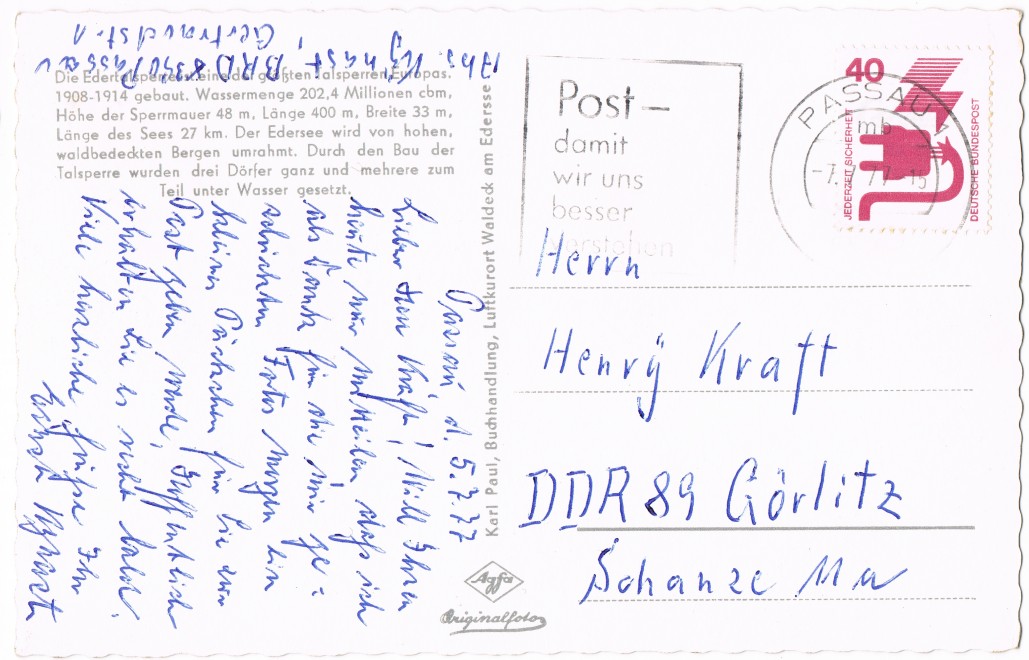 Die Edertalsperre ist eine der größten Talsperren Europas.
1908-1914 gebaut. Wassermenge 202,4 Millionen cbm,
Höhe der Sperrmauer 48 m, Länge 400 m, Breite 33 m,
Länge des Sees 27 km. Der Edersee wird von hohen,
waldbedeckten Bergen umrahmt. Durch den Bau der
Talsperre wurden drei Dörfer ganz und mehrere zum
Teil unter Wasser gesetzt.
BRD 8390 Passau
Passau, d. 5.7.77
Lieber Herr Kraft! Will Ihnen
heute nur mitteilen, daß ich
als Dank für die mir ge=
schickten Fotos morgen ein
kleines Päckchen für Sie zur
Post geben werde. Hoffentlich
erhalten Sie es recht bald.
Viele herzliche Grüße Ihr
Karl Paul, Buchhandlung, Luftkurort Waldeck am Edersee
Agfa
Originalfoto
Post—
damit
wir uns
besser
verstehen
PASSAU 1
mb
-7.7.77-15
40
JEDERZEIT SICHERHEIT
DEUTSCHE BUNDESPOST
Herrn
Henry Kraft
DDR 89 Görlitz
Schanze 11a